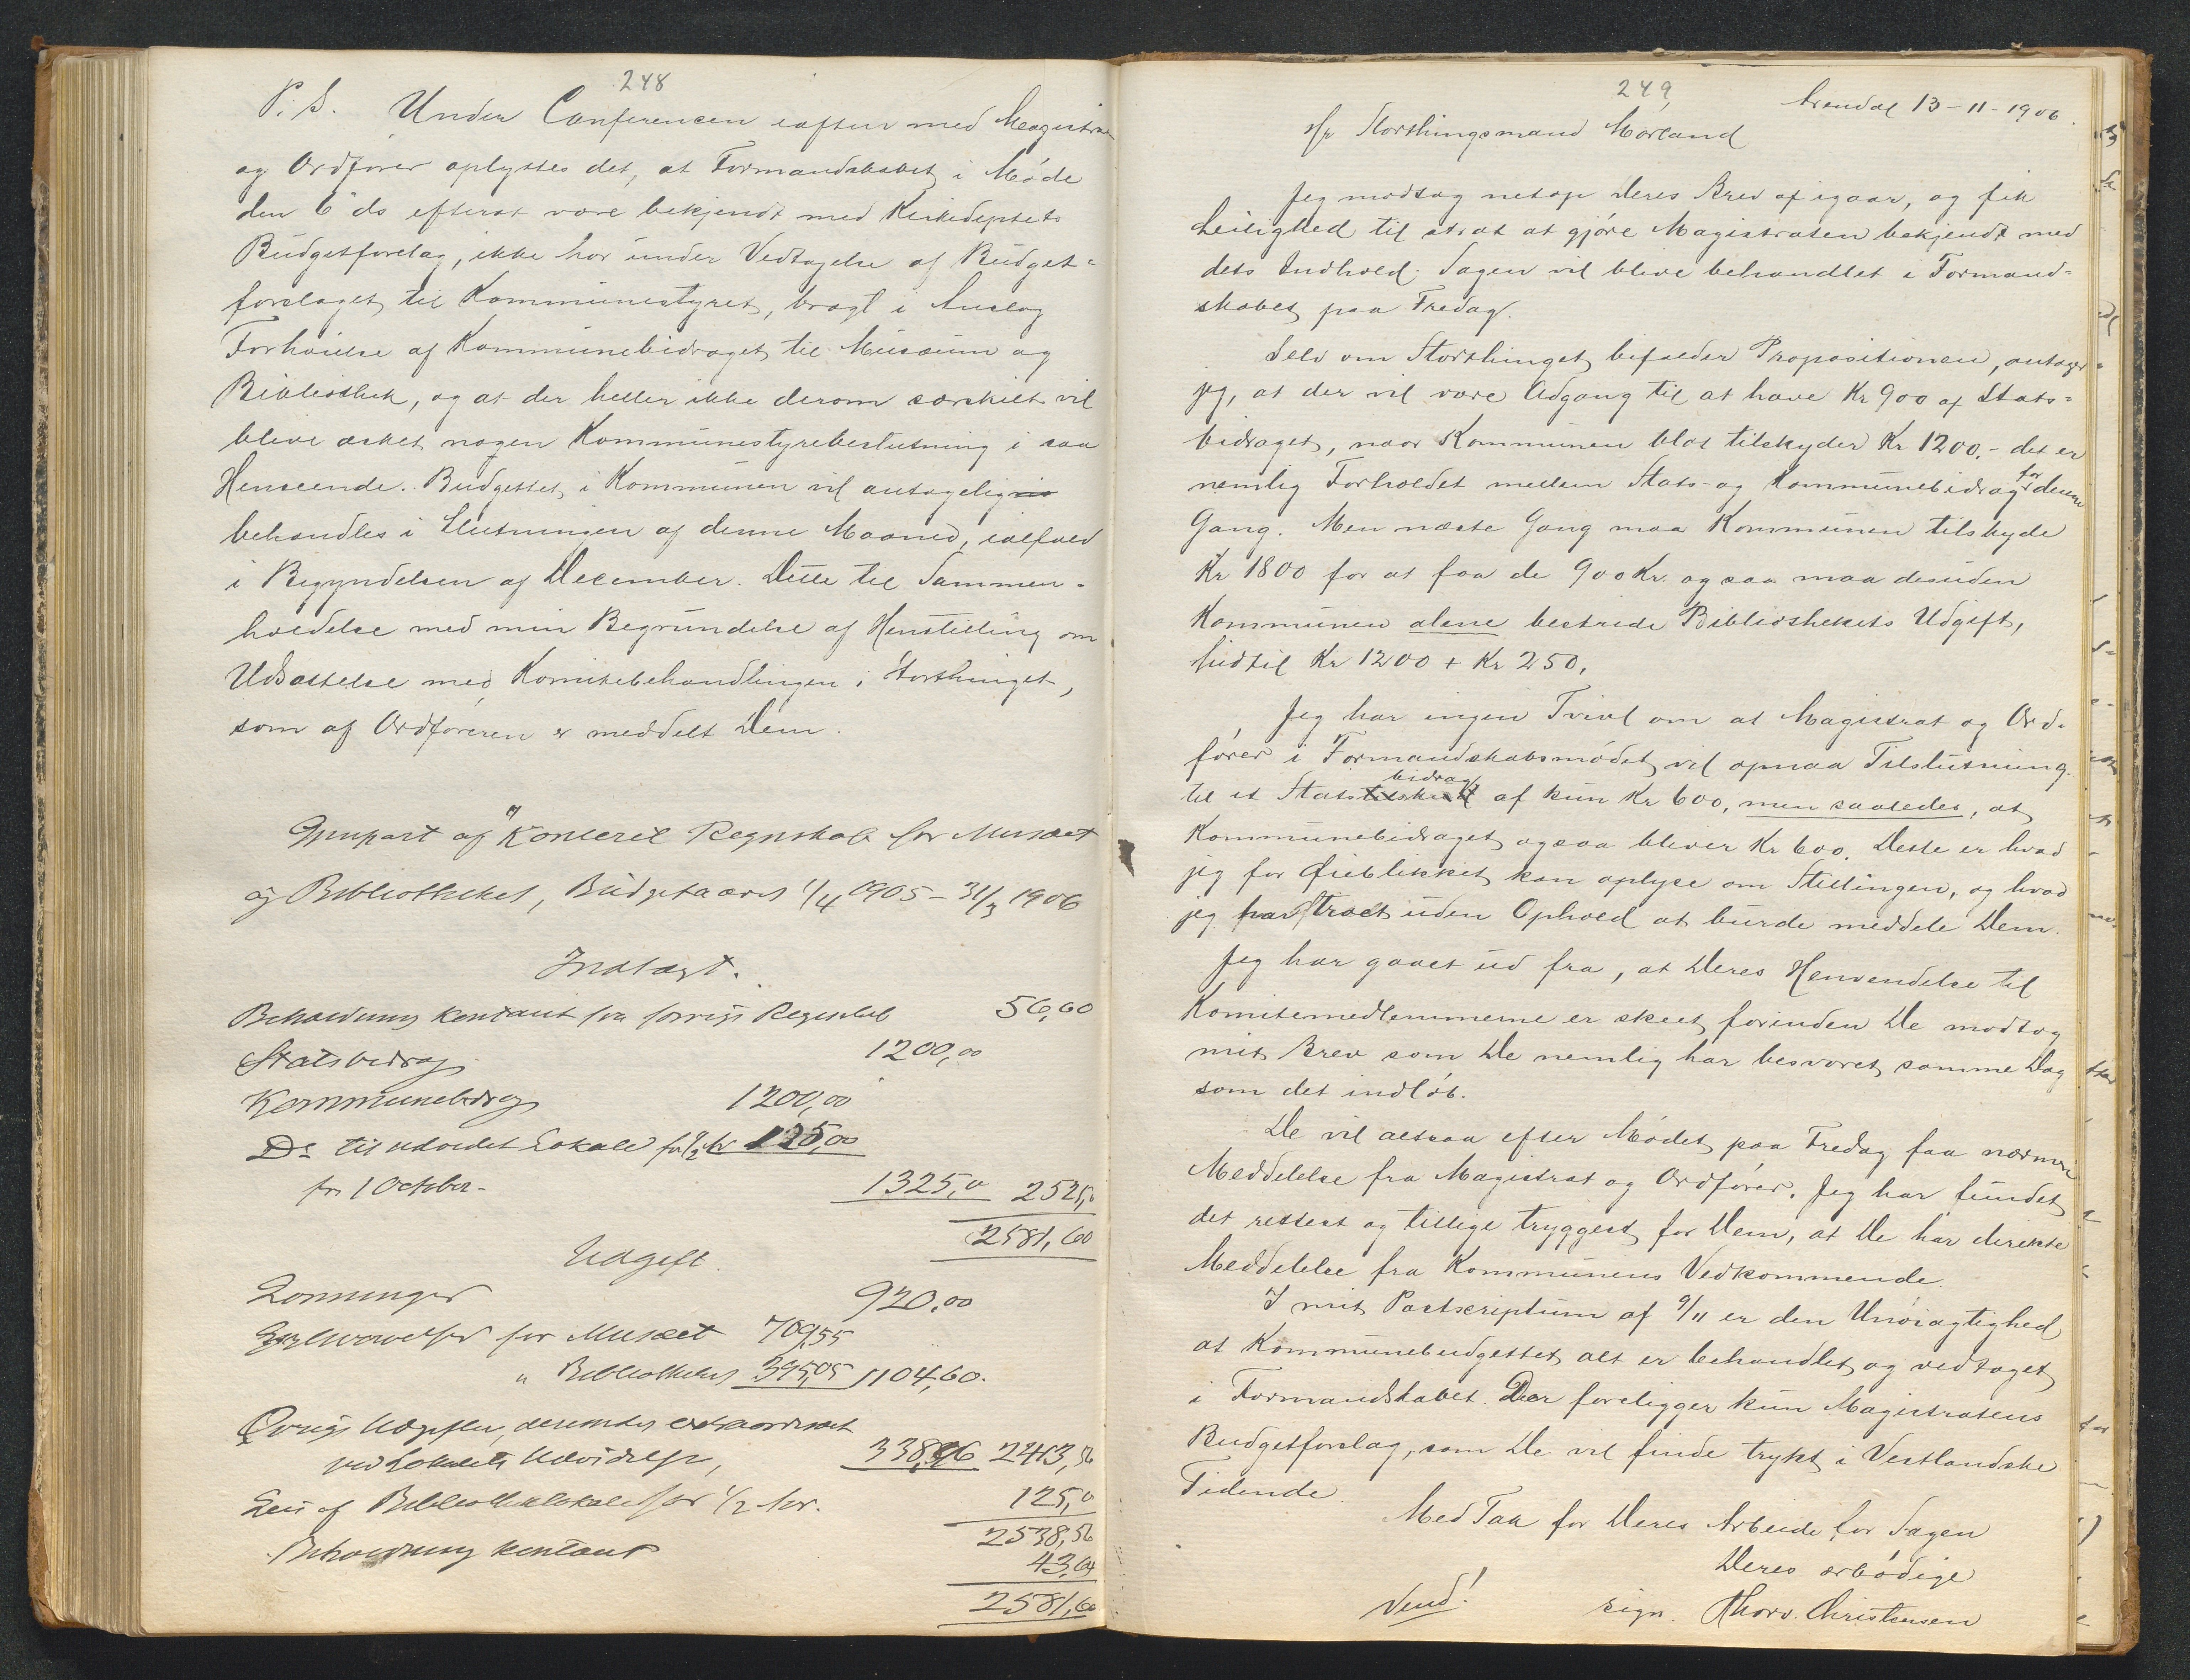 248
P.S. Under Conferencen iaften med Magistraten
og Ordfører oplystes det, at Formandskabet i Møde
den 6 ds efterat være bekjendt med Kirkedeptets
Budgetforslag, ikke har under Vedtagelse af Budget-
forslaget til Kommunestyret, bragt i Anslag
Forhøielse af Kommunebidraget til Musæum og
Bibliothek, og at der heller ikke derom særskilt vil
blive æsket nogen Kommunestyrebeslutning i saa
Henseende. Budgettet i Kommunen vil antagelig
behandles i Slutningen af denne Maaned, ialfald
i Begyndelsen af December. Dette til Sammen-
holdelse med min Begrundelse af Henstilling om
Udsættelse med Komitebehandlingen i Storthinget,
som af Ordføreren er meddelt Dem.
Gjenpart af Regnskab for Musæet
og Bibliotheket, Budgetaaret 1/4 1905 - 31/3 1906
Indtægt.
Beholdning kontant fra forrige Regnskab 56,60
Statsbidrag 1200,00
Kommunebidrag 1200,00
Do til udvidet Lokale for 1/2 Aar 125,00
fra 1 October - 1325,0 2525,0
2581,60
Udgift.
Lønninger 920,00
for Musæet 709,55
" Bibliotheket 395,05 1104,60.
Øvrige Udgifter, derunder extraordinært
ved Lokalets Udvidelse, 338,96 2413,56
Leie af Bibliotheklokale for 1/2 Aar. 125,0
2538,56
Beholdning kontant 43,04
2581,60
249,
Arendal 13-11-1906.
Hr Storthingsmand Mørland
Jeg modtog netop Deres Brev af igaar, og fik
Leilighed til strax at gjøre Magistraten bekjendt med
dets Indhold. Sagen vil blive behandlet i Formand-
skabet paa Fredag.
Selv om Storthinget bifalder Propositionen, antager
jeg, at der vil være Adgang til at hæve Kr 900 af Stats-
bidraget, naar Kommunen blot tilskyder Kr 1200.- det er
nemlig Forholdet mellem Stats- og Kommunebidrag for denne
Gang. Men næste Gang maa Kommunen tilskyde
Kr 1800 for at faa de 900 Kr. og saa maa desuden
Kommunen alene bestride Bibliothekets Udgift,
hidtil Kr 1200 + Kr 250.
Jeg har ingen Tvivl om at Magistrat og Ord-
fører i Formandskabsmødet vil opnaa Tilslutning
til et Statstilskud bidrag af kun Kr 600, men saaledes, at
Kommunebidraget ogsaa bliver Kr 600. Dette er hvad
jeg for Øieblikket kan oplyse om Stillingen, og hvad
jeg har troet uden Ophold at burde meddele Dem.
Jeg har gaaet ud fra, at Deres Henvendelse til
Komitemedlemmerne er skeet, forinden De modtog
mit Brev som De nemlig har besvaret samme Dag
som det indløb.
De vil altsaa efter Mødet paa Fredag faa nærmere
Meddelelse fra Magistrat og Ordfører. Jeg har fundet
det rettest og tillige tryggest for Dem, at De har direkte
Meddelelse fra Kommunens Vedkommende.
I mit Postscriptum af 9/11 er den Unøiagtighed
at Kommunebudgettet alt er behandlet og vedtaget
i Formandskabet. Der foreligger kun Magistratens
Budgetforslag, som De vil finde trykt i Vestlandske
Tidende.
Med Tak for Deres Arbeide for Sagen
Deres ærbødige
Vend! sign. Thorv. Christensen